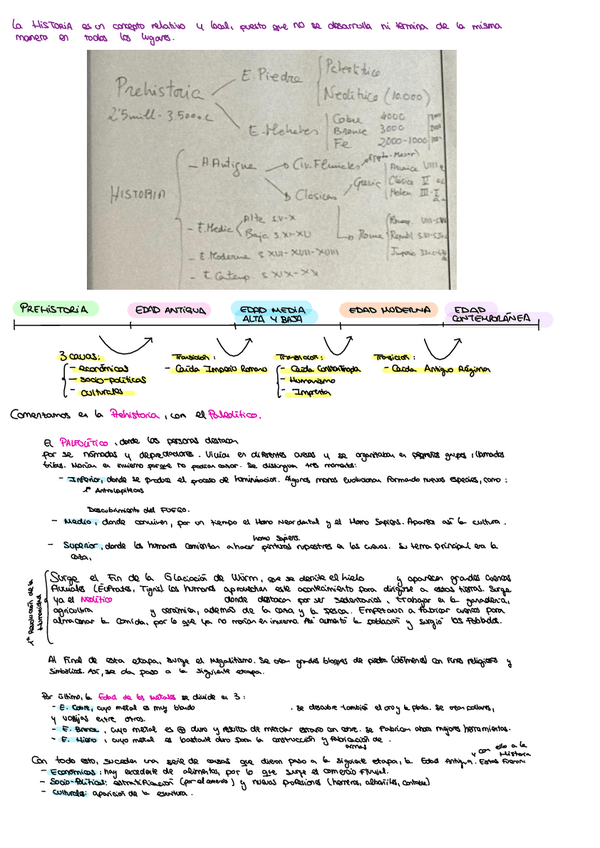 La HISTORIA es un concepto relativo y local, puesto que no se desarrolla ni termina de la misma
manera en todos los lugares.
Prehistoria
2'5mill - 3.500 a.C
E. Piedra
Paleolítico
Neolítico (10.000)
E. Metales
Cobre 4000
Bronce 3000
Fe 2000-1000
HISTORIA
- A. Antigua
Civ. Fluviales
Clásicas
Grecia
Arcaica VIII
Clásica V
Helen III-I
Roma
Republ
Imperio
- E. Media
Alta s.V-X
Baja s.XI-XV
- E. Moderna s XVI-XVII-XVIII
- E. Contemp. s XIX-XX
PREHISTORIA
EDAD ANTIGUA
EDAD MEDIA
ALTA Y BAJA
EDAD MODERNA
EDAD
CONTEMPORÁNEA
3 causas:
- económicas
- socio-políticas
- culturales
Transición:
- Caída Imperio Romano
Transición:
- Caída Constantinopla
- Humanismo
- Imprenta
Transición:
- Caída Antiguo Régimen
Comentamos en la Prehistoria, con el Paleolítico.
El PALEOLÍTICO, donde las personas destacan
por ser nómadas y depredadores. Vivían en diferentes cuevas y se organizaban en pequeños grupos, llamados
tribus. Morían en invierno porque no podían cazar. Se distinguen tres momentos:
- Inferior, donde se produce el proceso de hominización. Algunos monos evolucionan formando nuevas especies, como:
1º Antropopitecos
Descubrimiento del FUEGO.
- Medio, donde conviven, por un tiempo el Homo Neardental y el Homo Sapiens. Aparece así la cultura.
Homo Sapiens.
- Superior, donde los humanos comienzan a hacer pinturas rupestres en las cuevas. Su tema principal era la
caza.
1ª Revolución de la
Humanidad
Surge el Fin de la Glaciación de Würm, que se derrite el hielo y aparecen grandes cuencas
fluviales (Éufrates, Tigris) los humanos aprovechan este acontecimiento para dirigirse a estas tierras. Surge
ya el Neolítico donde destacan por ser sedentarios, trabajar en la ganadería,
agricultura y cerámica, además de la caza y la pesca. Empezaron a fabricar cuencos para
almacenar la comida, por lo que ya no morían en invierno. Así aumentó la población y surgió los Poblados.
Al final de esta etapa, surge el Megalitismo. Se usan grandes bloques de piedra (dólmenes) con fines religiosos y
simbólicos. Así, se da paso a la siguiente etapa.
Por último, la Edad de los Metales se divide en 3:
- E. Cobre, cuyo metal es muy blando . se descubre también el oro y la plata. Se crean collares,
y vasijas entre otros.
- E. Bronce, cuyo metal es ⊕ duro y resulta de mezclar estaño con cobre. Se fabrican ahora mejores herramientas.
- E. Hierro, cuyo metal es bastante duro para la construcción y fabricación de
armas
Con todo esto, suceden una serie de causas que dieron paso a la siguiente etapa, la Edad Antigua. Estas fueron:
y con ello a la
Historia
- Económicas: hay excedente de alimentos, por lo que surge el comercio fluvial.
- Socio-Políticas: estratificación y nuevas profesiones (herreros, albañiles, contable)
- Culturales: aparición de la escritura.